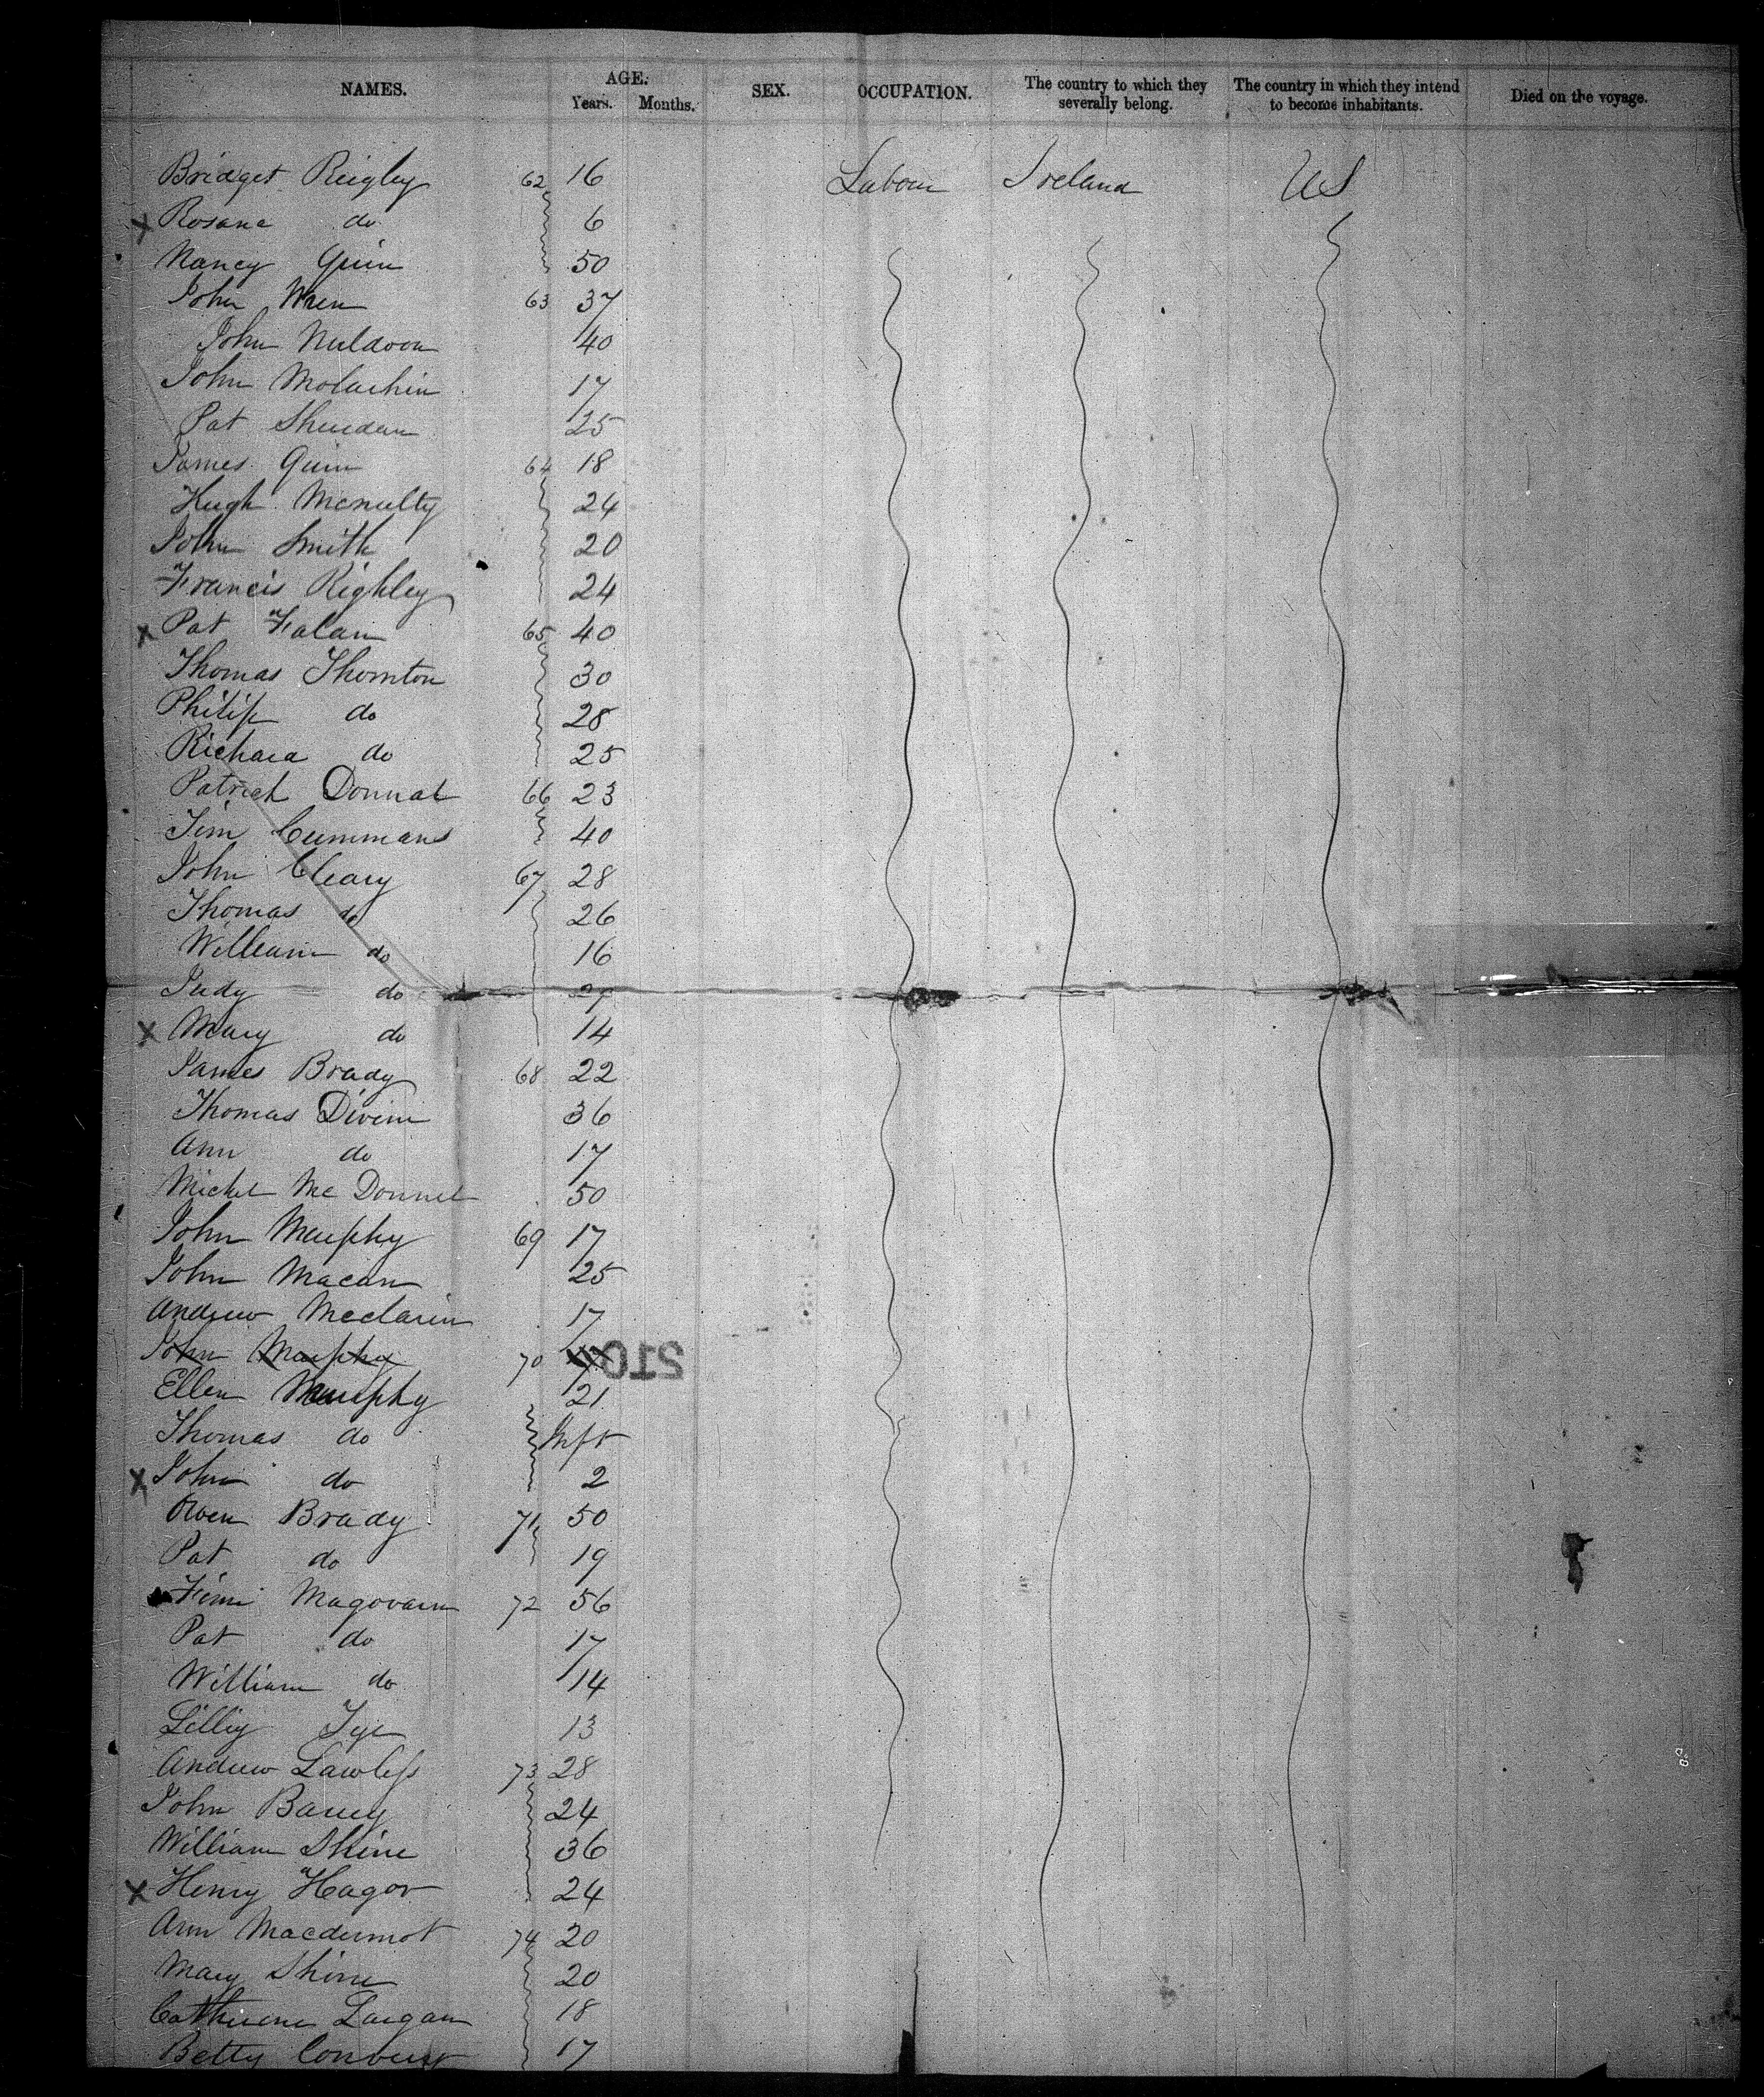 NAMES. AGE. Years. Months. SEX. OCCUPATION. The country to which they severally belong. The country in which they intend to become inhabitants. Died on the voyage.
Bridget Reigley 62 16 Labour Ireland US
X Rosana do 6
Nancy Quin 50
John Wren 63 37
John Muldoon 40
John Molachin 17
Pat Sheridan 25
James Quin 64 18
Hugh Mcnulty 24
John Smith 20
Francis Righley 24
X Pat Falan 65 40
Thomas Thornton 30
Philip do 28
Richard do 25
Patrick Donnal 66 23
Tim Cummans 40
John Cleary 67 28
Thomas do 26
William do 16
Judy do 29
X Mary do 14
James Brady 68 22
Thomas Divine 36
Ann do 17
Michel Mc Donnel 50
John Murphy 69 17
John Macan 25
Andrew Mcclarin 17
John Murphy 70
210
Ellen Murphy 21
Thomas do Inft
X John do 2
Owen Brady 71 50
Pat do 19
Magovarn 72 56
Pat do 17
William do 14
Lilly Tye 13
Andrew Lawless 73 28
John Barry 24
William Shine 36
X Henry Hagor 24
Ann Macdermot 74 20
Mary Shine 20
Catherine 18
Betty 17